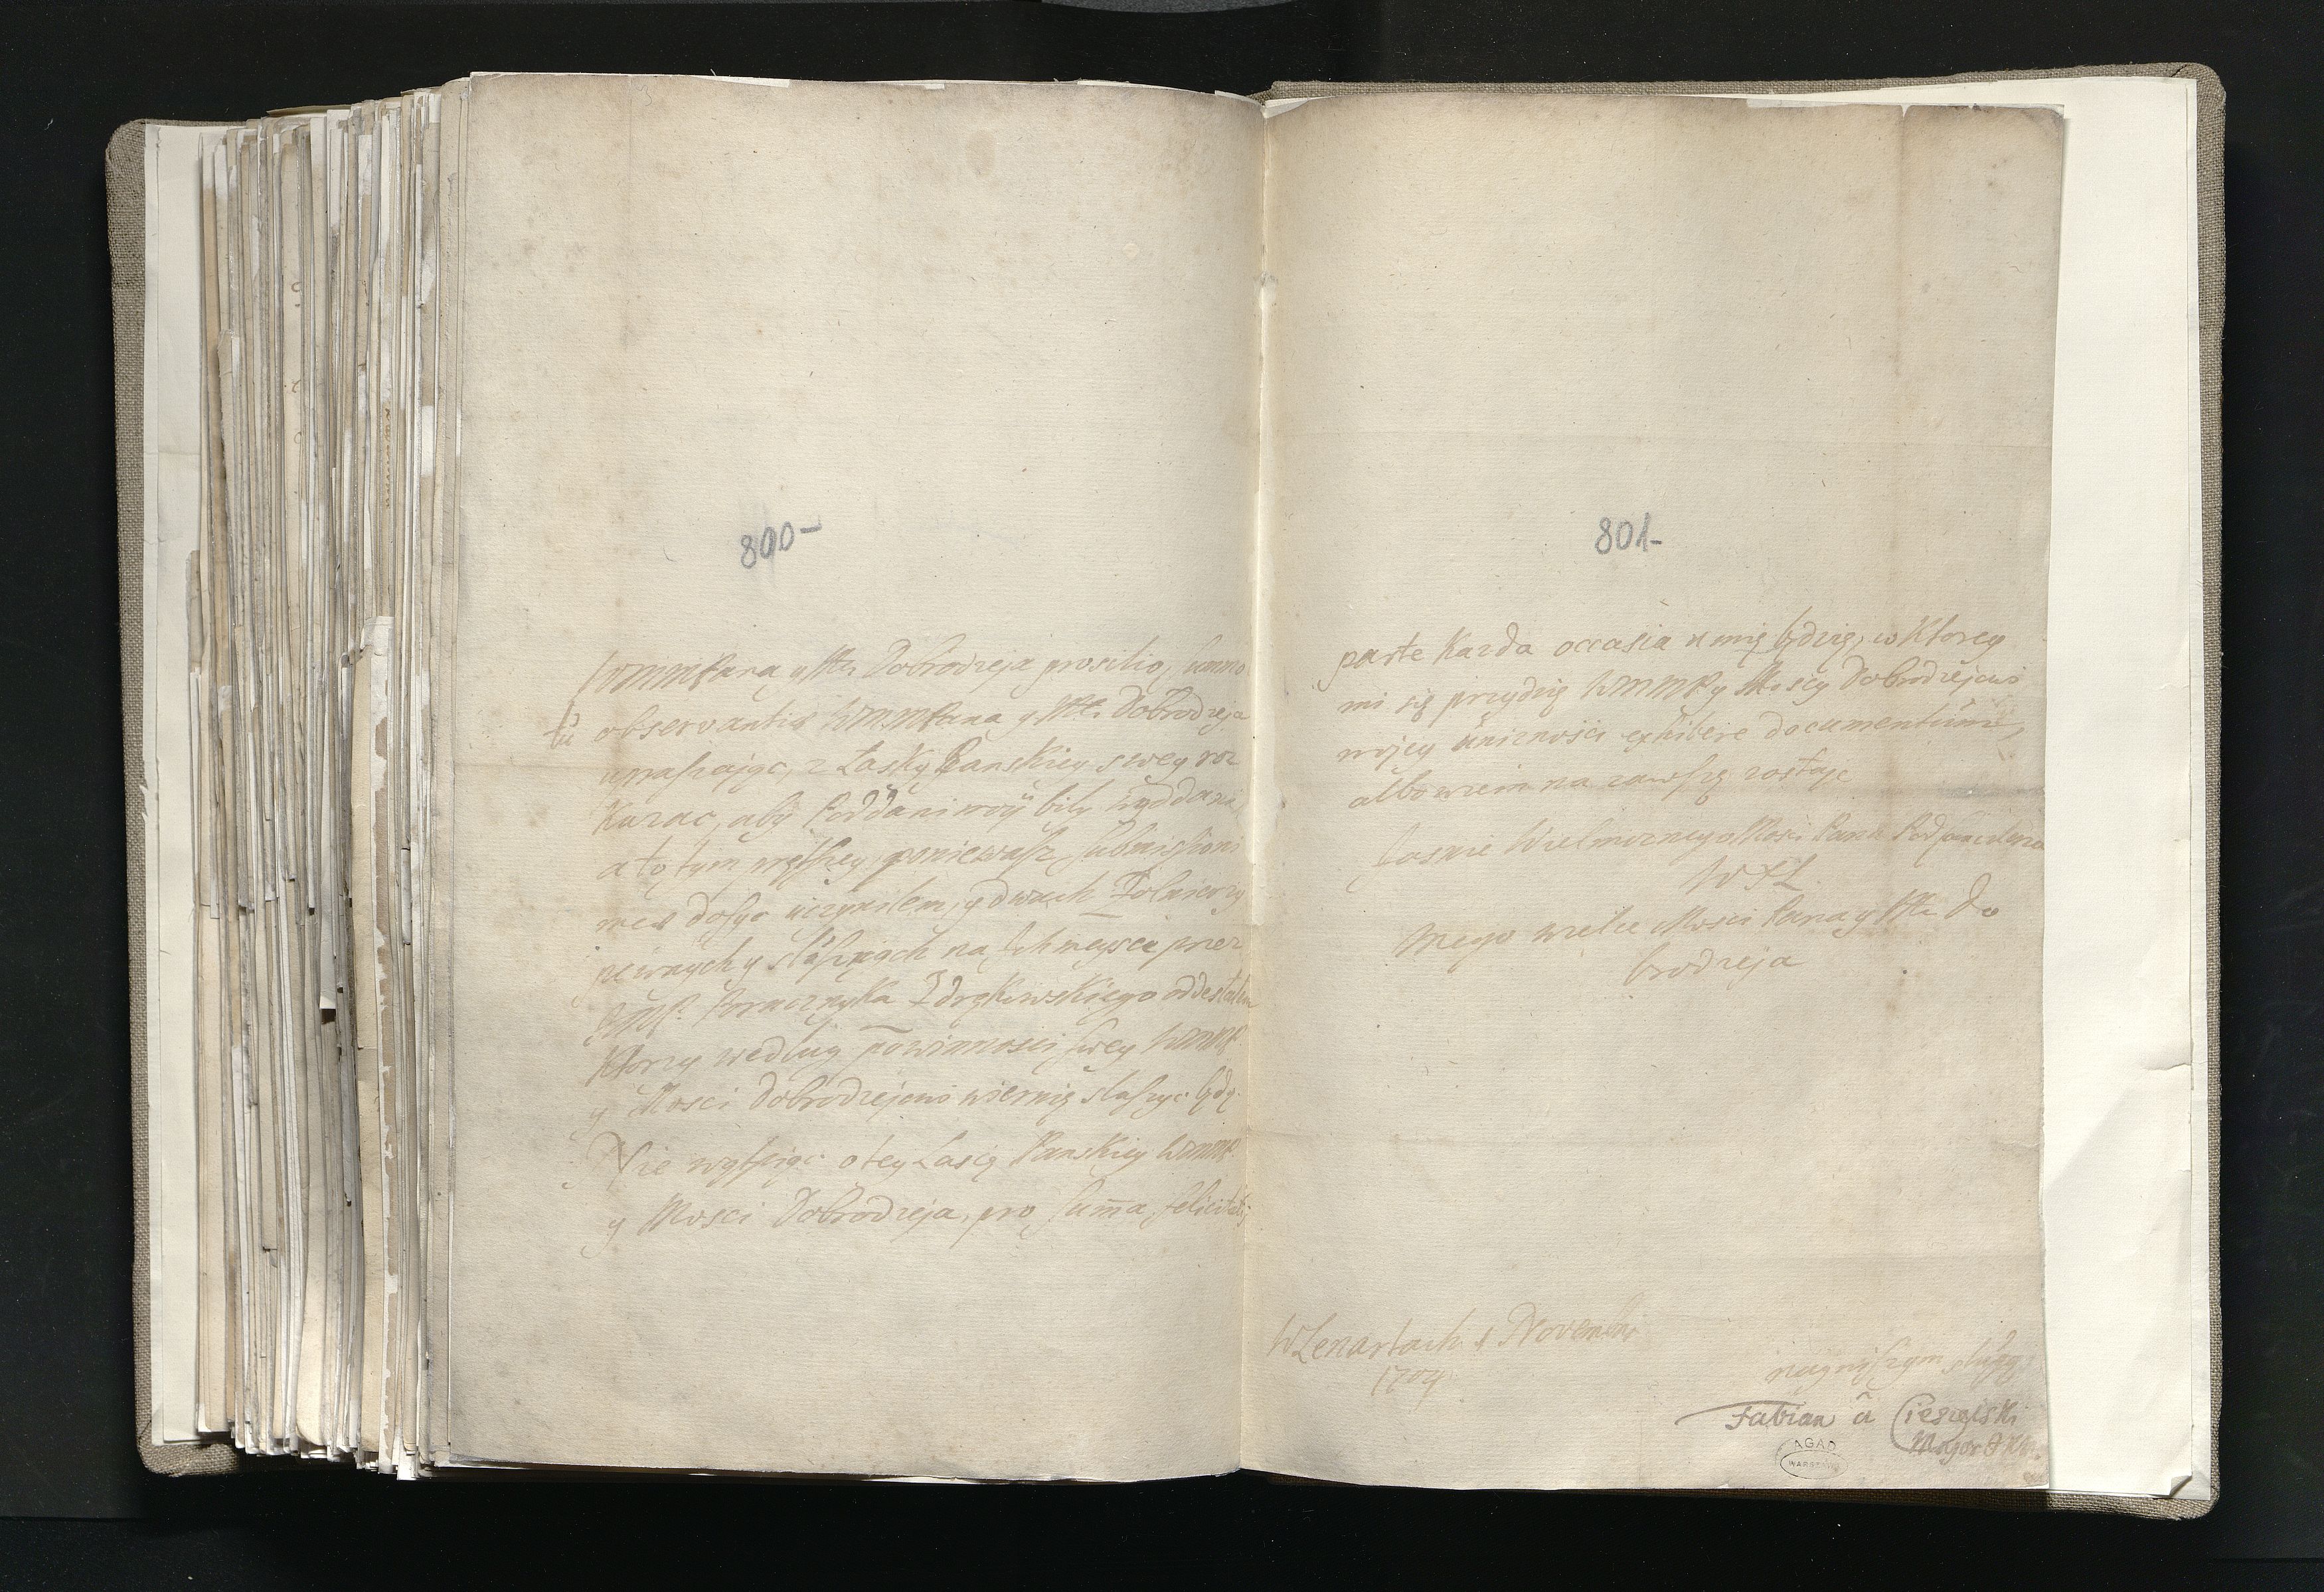 800-
WMMPana y Mći Dobrodzieja prosilio, summo
observantis WMMPana y Mći Dobrodzieja
upraszając, z Łasky Panskiey swey roz
kazac, aby Poddani moÿ bily wyddani
a to tym więtszey, poniewasz submissioni
mea dosyc uczynilem, y dwuch Zolnierzy
pewnych y na Ich mieysca przez
JMP. Porucznyka oddeslalem
Ktorzy wedlug powinnosci swey WMMP
y Mosci Dobrodziejowi wiernię slaszyc będą.
Nie wątpiąc o tey Łascę Panskiey WMMP
y Mosci Dobrodzieja, pro summa felicitatis
801-
parte Kazda occasia u mię będzię, w Ktorey
mi się przydzię WMMP y Mosćy Dobrodziejowi
mojey uniznośći exhibere documentum,
albowiem na zawszę zostaję
Jasnie Wielmoznego Mosci Pana Podskarbiego
WXL
Mego wielce Mosci Pana y Mći Do
brodzieja
W Lenartach 1 Novembris
1704
naynyszym slugą
Fabian â Cieszelski
Major JKM
AGAD
WARSZAWA